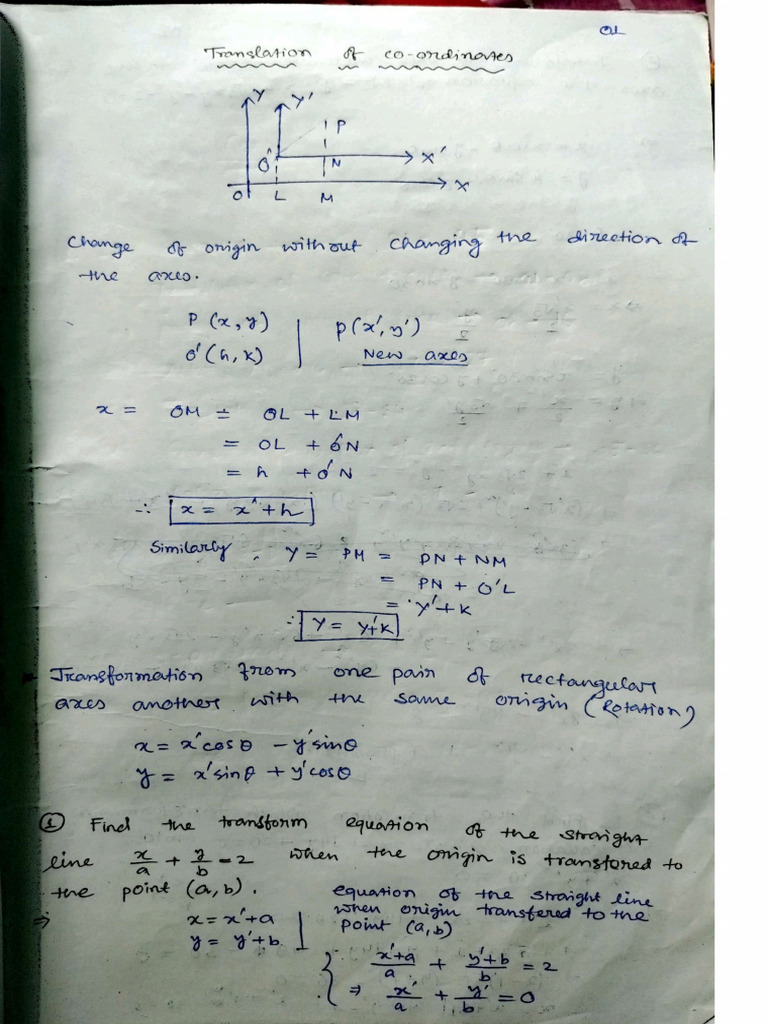 OL
Translation of co-ordinates
Y Y'
P
O' N X'
O L M X
Change of origin without changing the direction of
the axes.
P (x, y) | p(x', y')
O'(h, k) | New axes
x = OM = OL + LM
= OL + O'N
= h + O'N
∴ x = x' + h
Similarly, Y = PM = PN + NM
= PN + O'L
= Y' + K
∴ Y = Y'+K
Transformation from one pair of rectangular
axes another with the same origin (Rotation)
x = x'cosθ - y'sinθ
y = x'sinθ + y'cosθ
① Find the transform equation of the straight
line x/a + y/b = 2 when the origin is transfered to
the point (a, b).
⇒ x = x'+a
y = y'+b
equation of the straight line
when origin transfered to the
point (a,b)
x'+a/a + y'+b/b = 2
⇒ x'/a + y'/b = 0